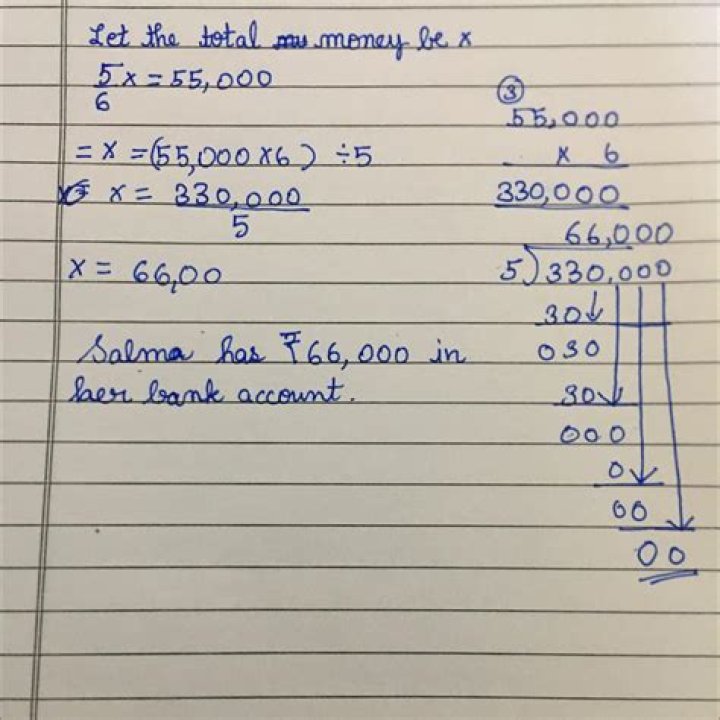 Let the total money be x
5/6 x = 55,000
= x = (55,000 x 6) ÷ 5
x = 330,000
5
x = 66,00
Salma has ₹66,000 in
her bank account.
3
55,000
x 6
330,000
66,000
5)330,000
30
030
30
000
0
00
00